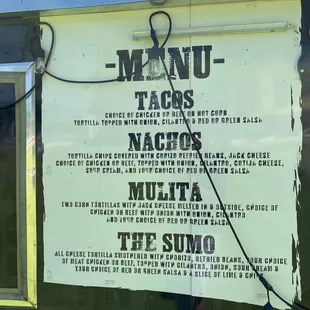 -MENU-
TACOS
CHOICE OF CHICKEN OR BEEF ON HOT CORN
TORTILLA TOPPED WITH ONION, CILANTRO & RED OR GREEN SALSA
NACHOS
TORTILLA CHIPS COVERED WITH CHORIZO REFRIED BEANS, JACK CHEESE
CHOICE OF CHICKEN OR BEEF, TOPPED WITH ONION, CILANTRO, COTIJA CHEESE,
SOUR CREAM, AND YOUR CHOICE OF RED OR GREEN SALSA
MULITA
TWO CORN TORTILLAS WITH JACK CHEESE MELTED IN & OUTSIDE, CHOICE OF
CHICKEN OR BEEF WITH ONION, CILANTRO
AND YOUR CHOICE OF RED OR GREEN SALSA
THE SUMO
ALL CHEESE TORTILLA SMOTHERED WITH CHORIZO, REFRIED BEANS, YOUR CHOICE
OF MEAT CHICKEN OR BEEF, TOPPED WITH CILANTRO, ONION, SOUR CREAM &
YOUR CHOICE OF RED OR GREEN SALSA & A SLICE OF LIME & CHIPS